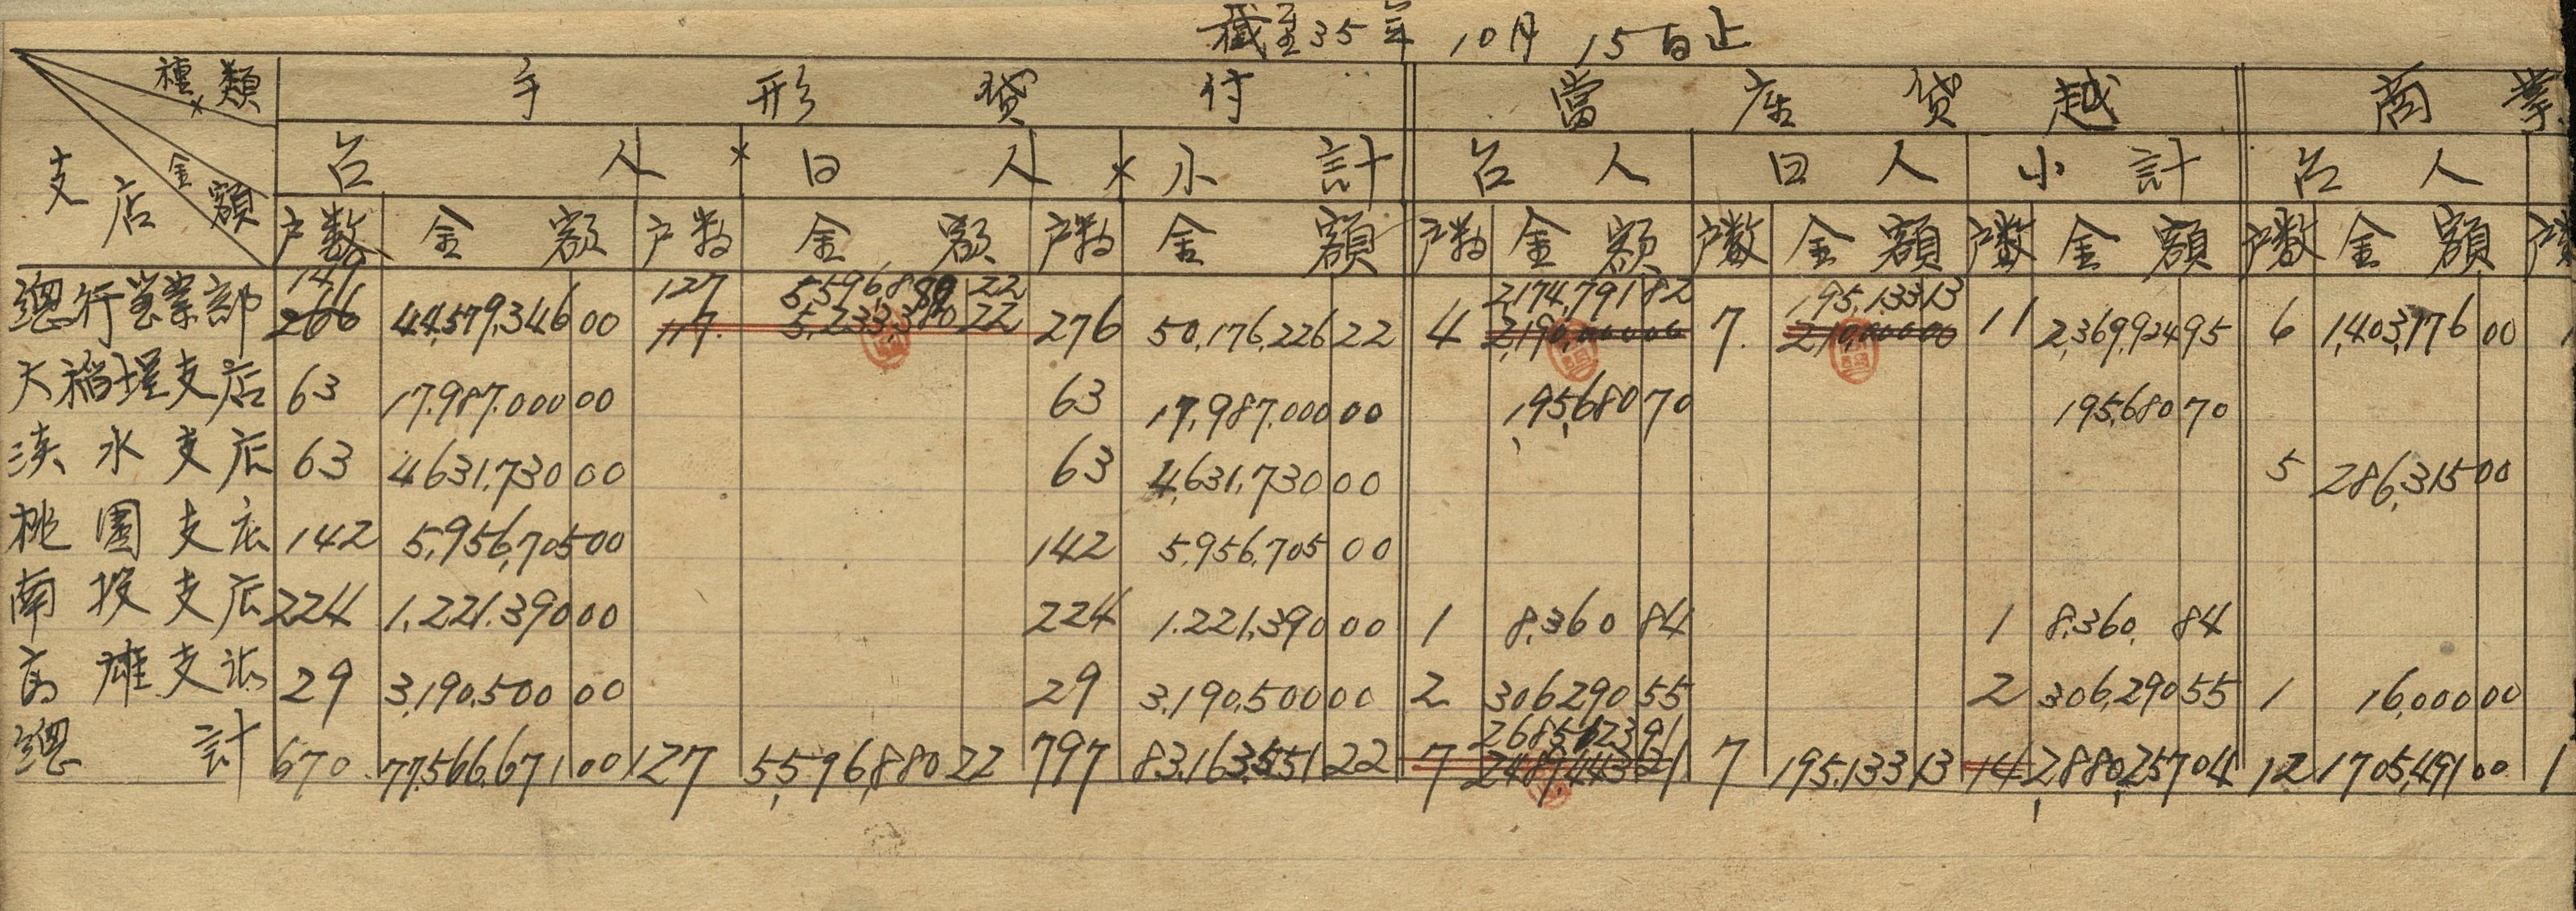 截至35年 10月 15日止
種類 手形貸付 當座貸越 商業
金額 台人 日人 小計 台人 日人 小計 台人
支店 户数 金額 户数 金額 户数 金額 户数 金額 户数 金額 户数 金額 户数 金額 户
149 127 5,596,880 22 2,174,791 82 195,133 13
總行營業部 266 44,579,346 00 117 5,233,380 22 276 50,176,226 22 4 2,190,000 00 7. 210,000 00 11 2,369,924 95 6 1,403,176 00 1
大稻埕支店 63 17,987,000 00 63 17,987,000 00 195,680 70 195,680 70
淡水支店 63 4631,730 00 63 4,631,730 00 5 286,315 00
桃園支店 142 5,956,705 00 142 5,956,705 00
南投支店 224 1,221,390 00 224 1,221,390 00 1 8,360 84 1 8,360 84
高雄支店 29 3,190,500 00 29 3,190,500 00 2 306290 55 2 306,290 55 1 16,000 00
2685123 91
總計 670 77,566,671 00 127 5,596,880 22 797 83,163,551 22 7 2489,443 21 7 195,133 13 14 2,880,257 04 12 1705,491 00 1